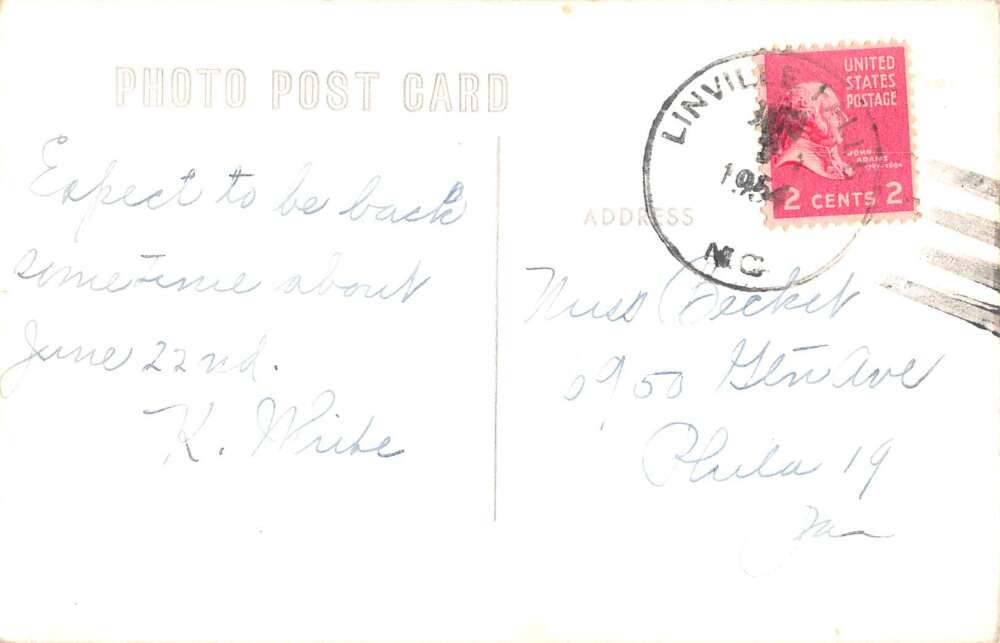 PHOTO POST CARD
Expect to be back
sometime about
June 22nd.
K. White
ADDRESS
LINVILLE FALLS
1954
N C
UNITED
STATES
POSTAGE
JOHN
ADAMS
2 CENTS 2
Miss Becket
5950 Glen Ave
Phila 19
Pa